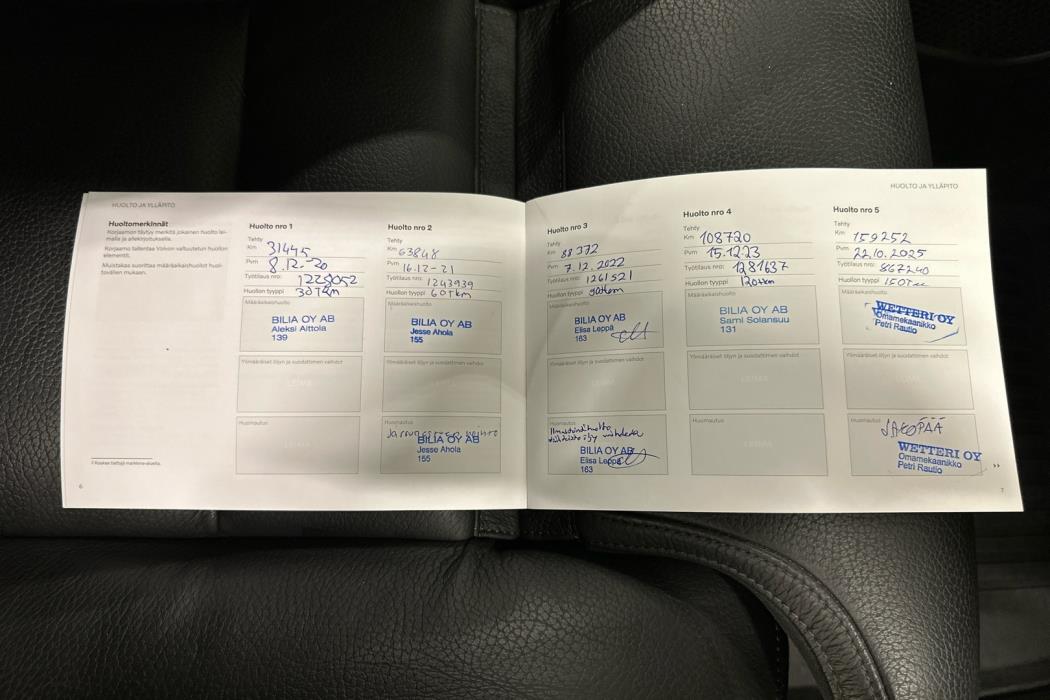 HUOLTO JA YLLÄPITO
Huoltomerkinnät
Korjaamon täytyy merkitä jokainen huolto lei-
malla ja allekirjoituksella.
Korjaamo tallentaa Volvon valtuutetun huollon
elementti.
Muistakaa suorittaa määräaikaishuollot huol-
tovälien mukaan.
6
Huolto nro 1
Tehty
Km 31445
Pvm 8.12.-20
Työtilaus nro: 1228052
Huollon tyyppi 30Tkm
Määräaikaishuolto
BILIA OY AB
Aleksi Aittola
139
Ylimääräiset öljyn ja suodattimen vaihdot
LEIMA
Huomautus
LEIMA
Huolto nro 2
Tehty
Km 63848
Pvm 16.12-21
Työtilaus nro: 1243939
Huollon tyyppi 60Tkm
Määräaikaishuolto
BILIA OY AB
Jesse Ahola
155
Ylimääräiset öljyn ja suodattimen vaihdot
Huomautus
BILIA OY AB
Jesse Ahola
155
HUOLTO JA YLLÄPITO
Huolto nro 3
Tehty
Km 88372
Pvm 7.12.2022
Työtilaus nro: 1261521
Huollon tyyppi 90tkm
Määräaikaishuolto
BILIA OY AB
Elisa Leppä
163
Ylimääräiset öljyn ja suodattimen vaihdot
LEIMA
Huomautus
BILIA OY AB
Elisa Leppä
163
Huolto nro 4
Tehty
Km 108720
Pvm 15.12.23
Työtilaus nro: 1281637
Huollon tyyppi 120tkm
Määräaikaishuolto
BILIA OY AB
Sami Solansuu
131
Ylimääräiset öljyn ja suodattimen vaihdot
LEIMA
Huomautus
LEIMA
Huolto nro 5
Tehty
Km 159252
Pvm 22.10.2025
Työtilaus nro: 867240
Huollon tyyppi
Määräaikaishuolto
WETTERI OY
Omamekaanikko
Petri Rautio
Ylimääräiset öljyn ja suodattimen vaihdot
LEIMA
Huomautus JAKOPÄÄ
WETTERI OY
Omamekaanikko
Petri Rautio
7